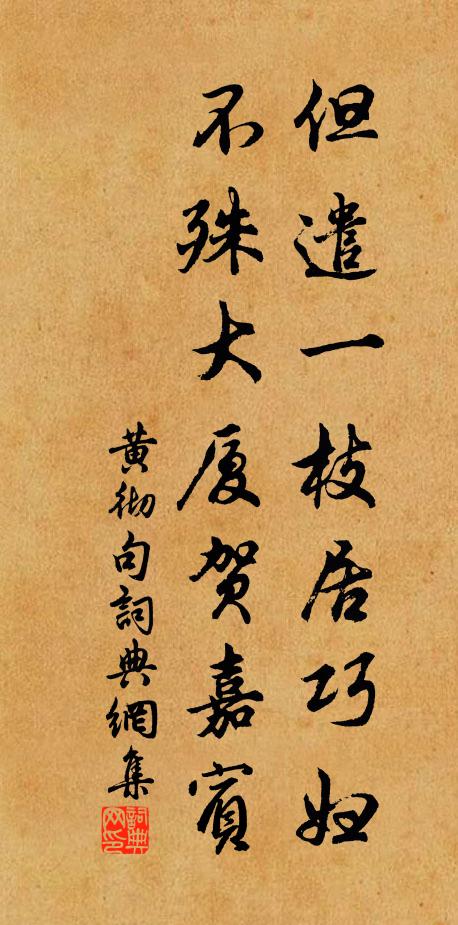 但遣一枝居巧妇
不殊大厦贺嘉宾
黄彻句詞典網集
詞典网印